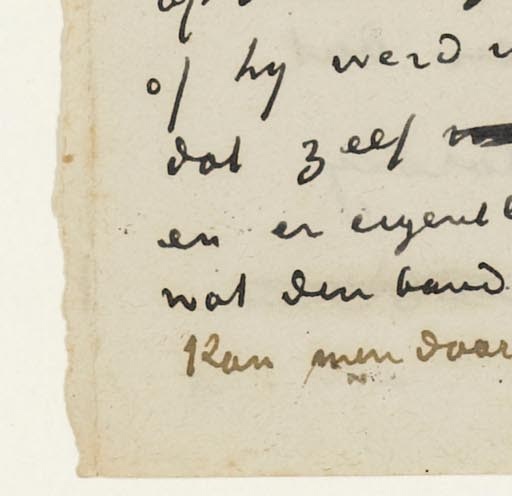 of hy werd
dat zelf
en er eigentl
wat den band
Kan men daar